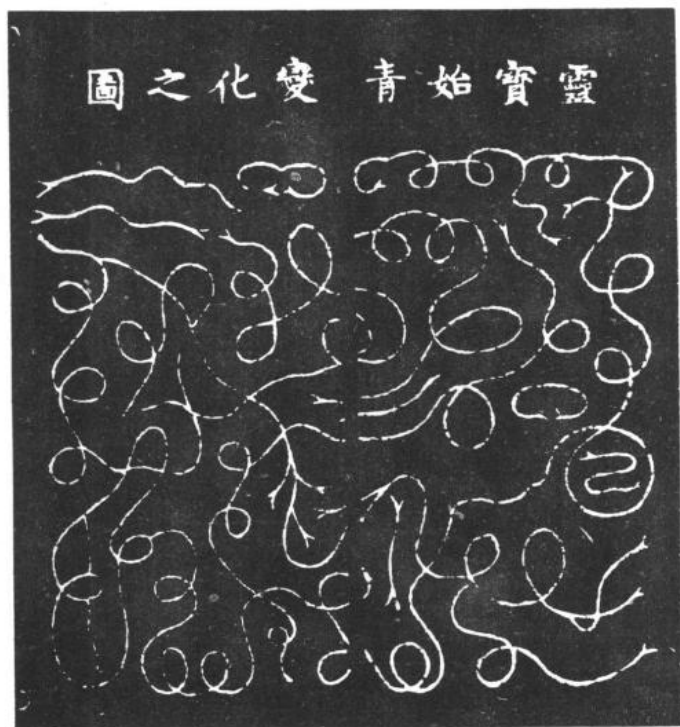 靈寶始青變化之圖